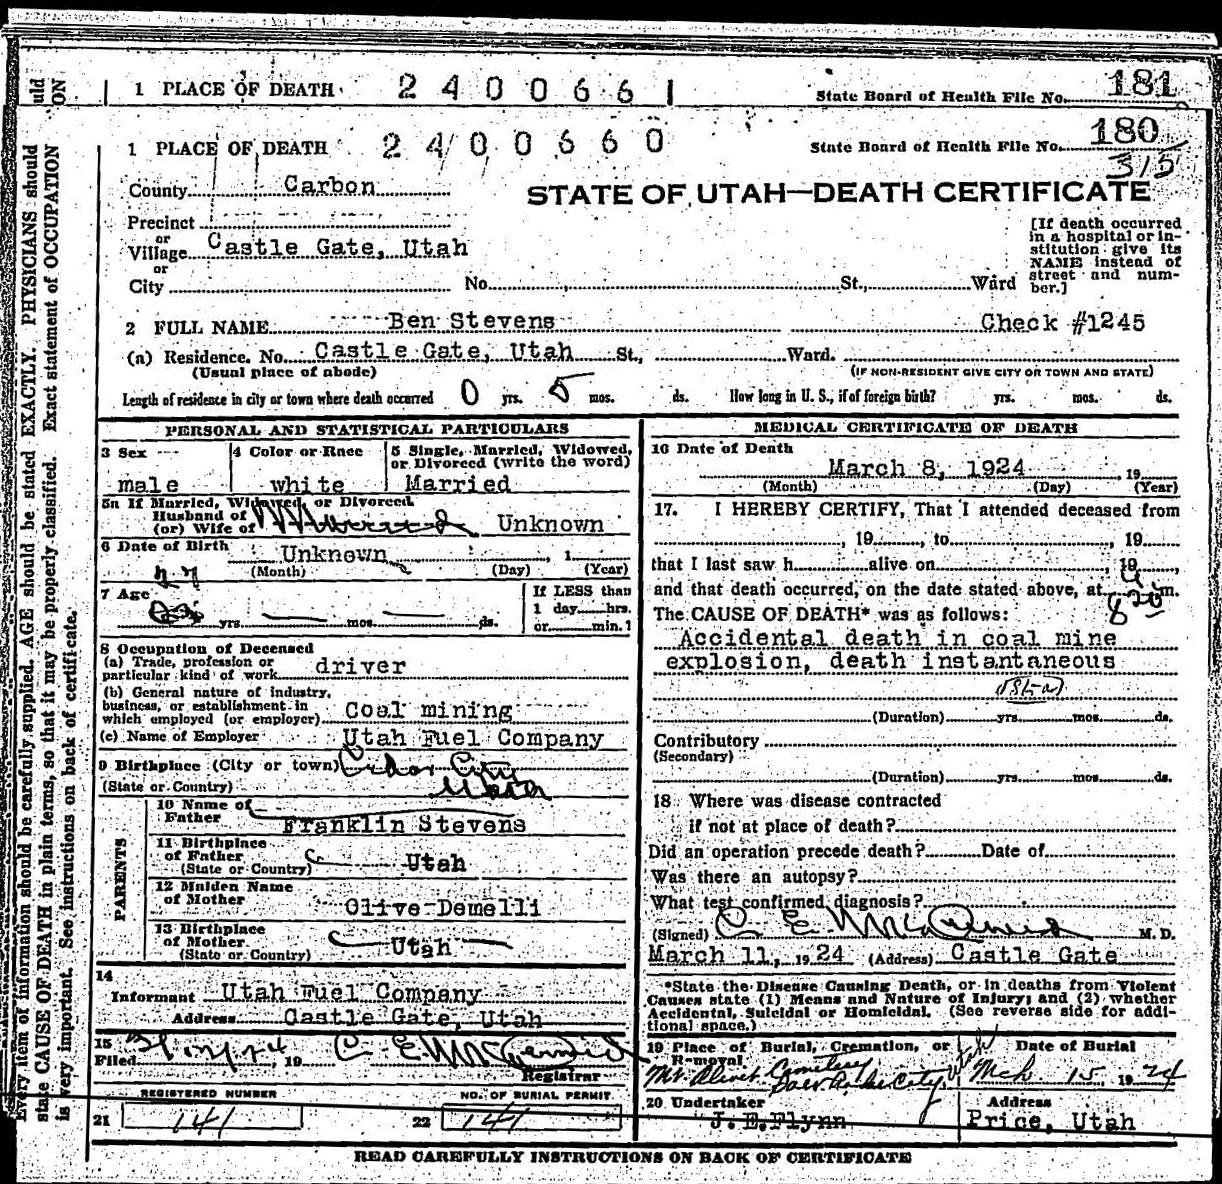 uld
ON
1 PLACE OF DEATH 2400661 State Board of Health File No. 181
1 PLACE OF DEATH 2400660 State Board of Health File No. 180
315
County Carbon
STATE OF UTAH—DEATH CERTIFICATE
Precinct
or
Village Castle Gate, Utah
or
City No. St., Ward
[If death occurred
in a hospital or in-
stitution give its
NAME instead of
street and num-
ber.]
2 FULL NAME Ben Stevens Check #1245
(a) Residence. No. Castle Gate, Utah St., Ward.
(Usual place of abode) (IF NON-RESIDENT GIVE CITY OR TOWN AND STATE)
Length of residence in city or town where death occurred 0 yrs. 5 mos. ds. How long in U. S., if of foreign birth? yrs. mos. ds.
PERSONAL AND STATISTICAL PARTICULARS
3 Sex
male
4 Color or Race
white
5 Single, Married, Widowed,
or Divorced (write the word)
Married
5a If Married, Widowed, or Divorced
Husband of
(or) Wife of Unknown
6 Date of Birth Unknown , 1
(Month) (Day) (Year)
7 Age
yrs. mos. ds.
If LESS than
1 day hrs.
or min.?
8 Occupation of Deceased
(a) Trade, profession or
particular kind of work driver
(b) General nature of industry,
business, or establishment in
which employed (or employer) Coal mining
(c) Name of Employer Utah Fuel Company
9 Birthplace (City or town) Cedar City
(State or Country) Utah
PARENTS
10 Name of
Father Franklin Stevens
11 Birthplace
of Father
(State or Country) Utah
12 Maiden Name
of Mother Olive Demelli
13 Birthplace
of Mother
(State or Country) Utah
14
Informant Utah Fuel Company
Address Castle Gate, Utah
15
Filed , 19 C. E. McDermid
Registrar
REGISTERED NUMBER
21 141
NO. OF BURIAL PERMIT
22 141
MEDICAL CERTIFICATE OF DEATH
16 Date of Death
March 8, 1924 19
(Month) (Day) (Year)
17. I HEREBY CERTIFY, That I attended deceased from
, 19 , to , 19
that I last saw h alive on , 19 ,
and that death occurred, on the date stated above, at 8 20 m.
The CAUSE OF DEATH* was as follows:
Accidental death in coal mine
explosion, death instantaneous
(Duration) yrs. mos. ds.
Contributory
(Secondary)
(Duration) yrs. mos. ds.
18 Where was disease contracted
if not at place of death?
Did an operation precede death? Date of
Was there an autopsy?
What test confirmed diagnosis?
(Signed) C. E. McDermid M. D.
March 11, 1924 (Address) Castle Gate
*State the Disease Causing Death, or in deaths from Violent
Causes state (1) Means and Nature of Injury; and (2) whether
Accidental, Suicidal or Homicidal. (See reverse side for addi-
tional space.)
19 Place of Burial, Cremation, or
Removal
Mt. Olivet Cemetery
Salt Lake City, Utah
Date of Burial
Mch 15, 1924
20 Undertaker
J. E. Flynn
Address
Price, Utah
READ CAREFULLY INSTRUCTIONS ON BACK OF CERTIFICATE
Every item of information should be carefully supplied. AGE should be stated EXACTLY. PHYSICIANS should
state CAUSE OF DEATH in plain terms, so that it may be properly classified. Exact statement of OCCUPATION
is very important. See instructions on back of certificate.